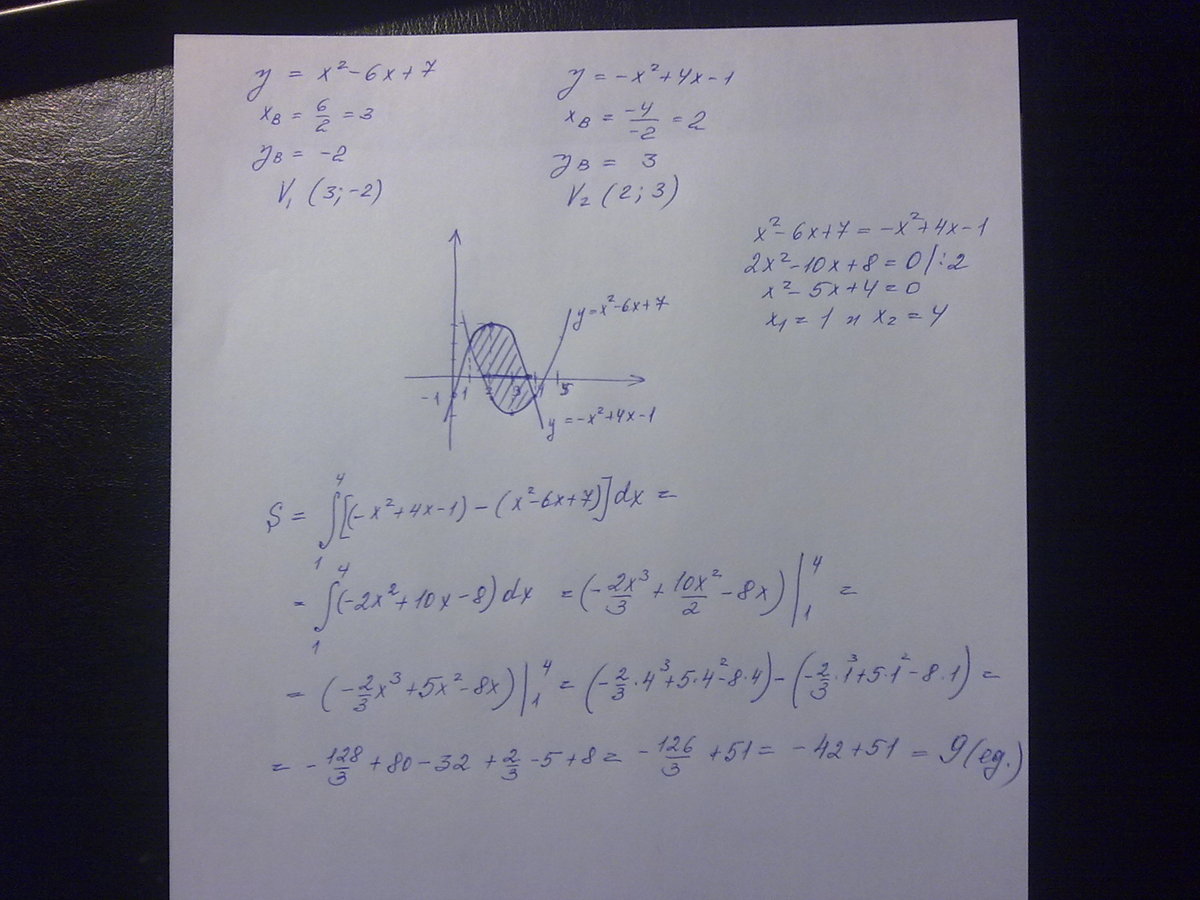 y = x² - 6x + 7
x_B = 6/2 = 3
y_B = -2
V₁ (3; -2)
y = -x² + 4x - 1
x_B = -4/-2 = 2
y_B = 3
V₂ (2; 3)
x² - 6x + 7 = -x² + 4x - 1
2x² - 10x + 8 = 0 / : 2
x² - 5x + 4 = 0
x₁ = 1 и x₂ = 4
y = x² - 6x + 7
-1 1 2 3 4 5
y = -x² + 4x - 1
S = ∫₁⁴ [(-x² + 4x - 1) - (x² - 6x + 7)] dx =
= ∫₁⁴ (-2x² + 10x - 8) dx = (-2x³/3 + 10x²/2 - 8x) |₁⁴ =
= (-2/3 x³ + 5x² - 8x) |₁⁴ = (-2/3 · 4³ + 5 · 4² - 8 · 4) - (-2/3 · 1³ + 5 · 1² - 8 · 1) =
= -128/3 + 80 - 32 + 2/3 - 5 + 8 = -126/3 + 51 = -42 + 51 = 9 (eg.)